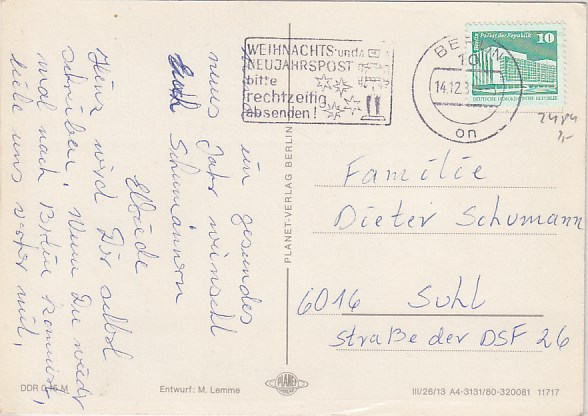 WEIHNACHTS- und
NEUJAHRSPOST
bitte
rechtzeitig
absenden!
BERLIN
14.12.8
on
Berlin Palast der Republik
10
DEUTSCHE DEMOKRATISCHE REPUBLIK
ein gesundes
neues Jahr wünscht
Euch Schumännern
Elfriede
Heinz wird Dir selbst
schreiben. Wenn Du wieder
mal nach Berlin kommst,
teile uns vorher mit,
Familie
Dieter Schumann
6016 Suhl
Straße der DSF 26
PLANET-VERLAG BERLIN
PLANET
DDR 0,15 M
Entwurf: M. Lemme
III/26/13 A4-3131/80-320081 11717